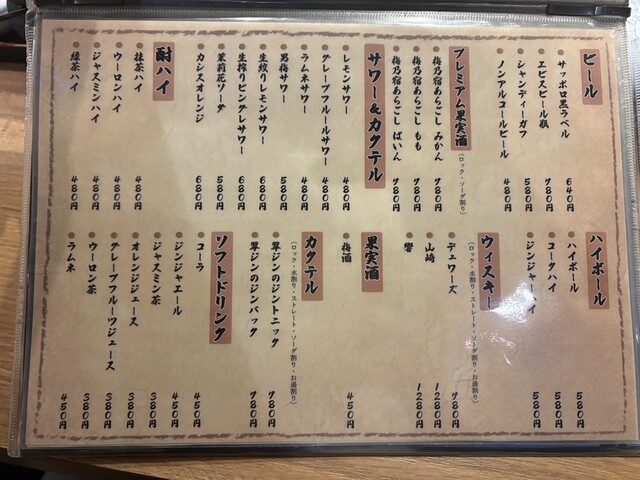 ビール
サッポロ黒ラベル 640円
エビスビール瓶 780円
シャンディーガフ 580円
ノンアルコールビール 480円
プレミアム果実酒(ロック・ソーダ割り)
梅乃宿あらごし みかん 780円
梅乃宿あらごし もも 780円
梅乃宿あらごし ぱいん 780円
サワー&カクテル
レモンサワー 480円
グレープフルーツサワー 480円
ラムネサワー 480円
男梅サワー 580円
生絞りレモンサワー 680円
生搾りピンデレサワー 680円
茉莉花ソーダ 580円
カシスオレンジ 680円
酎ハイ
抹茶ハイ 480円
ウーロンハイ 480円
ジャスミンハイ 480円
緑茶ハイ 480円
ハイボール
ハイボール 580円
コークハイ 580円
ジンジャーハイ 580円
ウィスキー
(ロック・水割り・ストレート・ソーダ割り・お湯割り)
デュワーズ 780円
山崎 1280円
響 1280円
果実酒
梅酒 450円
カクテル
(ロック・水割り・ストレート・ソーダ割り・お湯割り)
翠ジンのジントニック 780円
翠ジンのジンバック 780円
ソフトドリンク
コーラ 450円
ジンジャエール 450円
ジャスミン茶 380円
オレンジジュース 380円
グレープフルーツジュース 380円
ウーロン茶 380円
ラムネ 450円